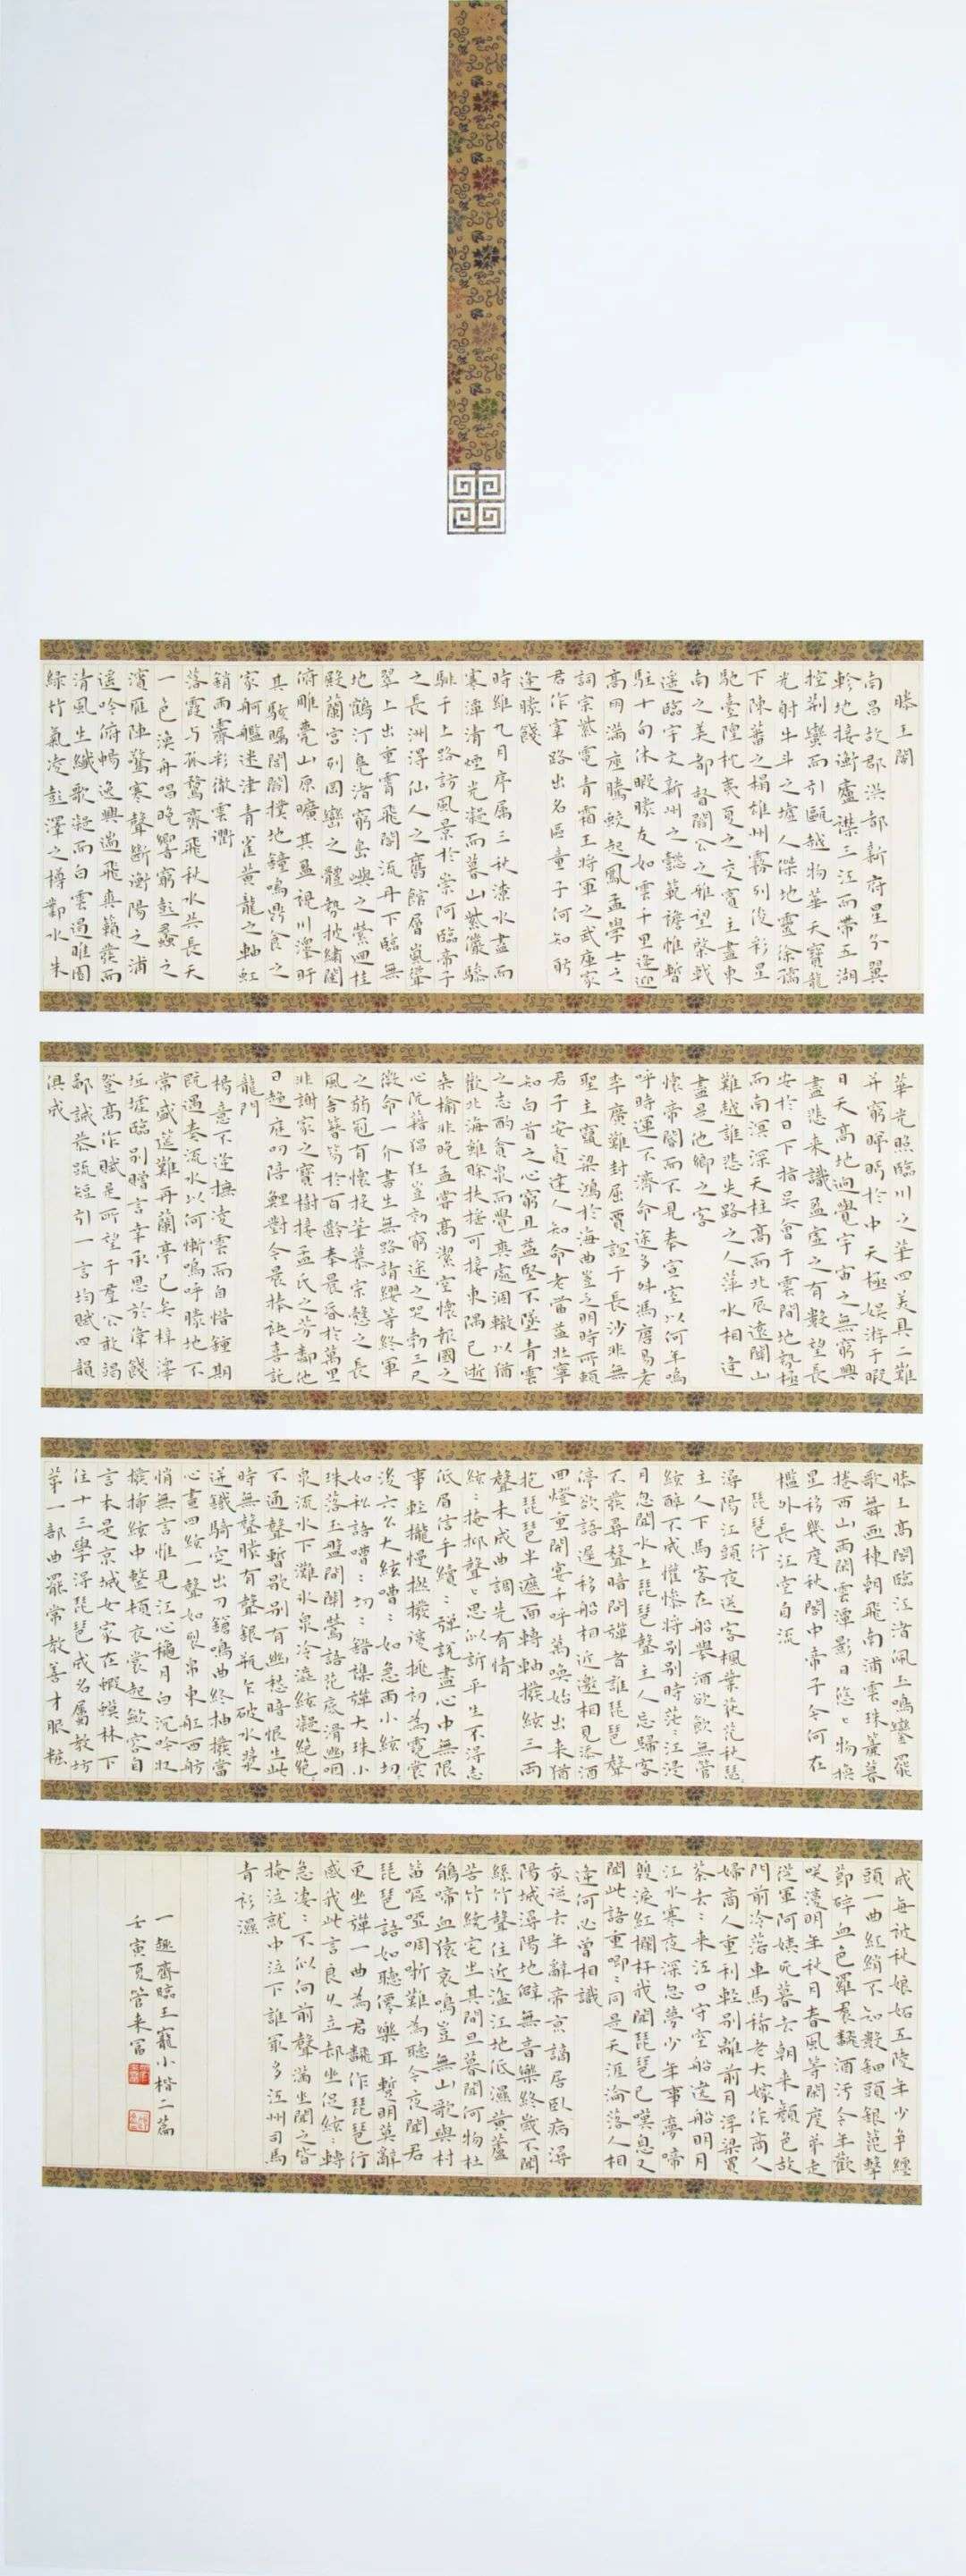 滕王閣
南昌故郡洪都新府星分翼
軫地接衡廬襟三江而帶五湖
控荊蠻而引甌越物華天寶龍
光射牛斗之墟人傑地靈徐孺
下陳蕃之榻雄州霧列俊彩星
馳臺隍枕夷夏之交賓主盡東
南之美都督閻公之雅望棨戟
遙臨宇文新州之懿範襜帷暫
駐十旬休暇勝友如雲千里逢迎
高朋滿座騰蛟起鳳孟學士之
詞宗紫電青霜王將軍之武庫家
君作宰路出名區童子何知躬
逢勝餞
時維九月序屬三秋潦水盡而
寒潭清煙光凝而暮山紫儼驂
騑于上路訪風景於崇阿臨帝子
之長洲得仙人之舊館層巒聳
翠上出重霄飛閣流丹下臨無
地鶴汀鳧渚窮島嶼之縈迴桂
殿蘭宮列岡巒之體勢披繡闥
俯雕甍山原曠其盈視川澤盱
其駭矚閭閻撲地鐘鳴鼎食之
家舸艦迷津青雀黃龍之軸虹
銷雨霽彩徹雲衢
落霞与孤鶩齊飛秋水共長天
一色漁舟唱晚響窮彭蠡之
濱雁陣驚寒聲斷衡陽之浦
遙吟俯暢逸興遄飛爽籟發而
清風生纖歌凝而白雲遏睢園
綠竹氣凌彭澤之樽鄴水朱
華光照臨川之筆四美具二難
并窮睇眄於中天極娛游于暇
日天高地迥覺宇宙之無窮興
盡悲来識盈虛之有數望長
安於日下指吳會于雲間地勢極
而南溟深天柱高而北辰遠關山
難越誰悲失路之人萍水相逢
盡是他鄉之客
懷帝閽而不見奉宣室以何年嗚
呼時運不濟命途多舛馮唐易老
李廣難封屈賈誼于長沙非無
聖主竄梁鴻於海曲豈乏明時所賴
君子安貞達人知命老當益壯寧
知白首之心窮且益堅不墜青雲
之志酌貪泉而覺爽處涸轍以猶
歡北海雖賒扶搖可接東隅已逝
桑榆非晚孟嘗高潔空懷報國之
心阮籍猖狂豈效窮途之哭勃三尺
微命一介書生無路請纓等終軍
之弱冠有懷投筆慕宗愨之長
風舍簪笏於百齡奉晨昏於萬里
非謝家之寶樹接孟氏之芳鄰他
日趨庭叨陪鯉對今晨捧袂喜託
龍門
楊意不逢撫凌雲而自惜鍾期
既遇奏流水以何慚嗚呼勝地不
常盛筵難再蘭亭已矣梓澤
坵墟臨別贈言幸承恩於偉餞
登高作賦是所望于羣公敢竭
鄙誠恭疏短引一言均賦四韻
俱成
滕王高閣臨江渚佩玉鳴鑾罷
歌舞画棟朝飛南浦雲珠簾暮
捲西山雨閑雲潭影日悠〻物換
星移幾度秋閣中帝子今何在
檻外長江空自流
琵琶行
潯陽江頭夜送客楓葉荻花秋瑟〻
主人下馬客在船舉酒欲飲無管
絃醉不成懽慘將別別時茫〻江浸
月忽聞水上琵琶聲主人忘歸客
不發尋聲暗問彈者誰琵琶聲
停欲語遲移船相近邀相見添酒
回燈重開宴千呼萬喚始出来猶
抱琵琶半遮面轉軸撥絃三兩
聲未成曲調先有情
絃〻掩抑聲〻思似訴平生不得志
低眉信手續〻彈說盡心中無限
事輕攏慢撚撥復挑初為霓裳
後六么大絃嘈〻如急雨小絃切〻
如私語嘈〻切〻錯雜彈大珠小
珠落玉盤間關鶯語花底滑幽咽
泉流水下灘水泉冷澁絃凝絕凝絕
不通聲暫歇別有幽愁暗恨生此
時無聲勝有聲銀瓶乍破水漿
迸鐵騎突出刀鎗鳴曲終抽撥當
心畫四絃一聲如裂帛東船西舫
悄無言惟見江心穐月白沉吟收
撥插絃中整頓衣裳起斂容自
言本是京城女家在蝦蟆林下
住十三學得琵琶成名屬教坊
第一部曲罷常教善才服粧
成每被秋娘妬五陵年少爭纏
頭一曲紅綃不知數鈿頭銀篦擊
節碎血色羅裠飜酒污今年歡
咲復明年秋月春風等閑度弟走
從軍阿姨死暮去朝来顏色故
門前冷落車馬稀老大嫁作商人
婦商人重利輕別離前月浮梁買
茶去〻来江口守空船遶船明月
江水寒夜深忽夢少年事夢啼
粧淚紅欄杆我聞琵琶已嘆息又
聞此語重唧〻同是天涯淪落人相
逢何必曾相識
我從去年辭帝京謫居臥病潯
陽城潯陽地僻無音樂終歲不聞
絲竹聲住近湓江地低濕黃蘆
苦竹繞宅生其間旦暮聞何物杜
鵑啼血猿哀鳴豈無山歌與村
笛嘔啞啁哳難為聽今夜聞君
琵琶語如聽僊樂耳暫明莫辭
更坐彈一曲為君飜作琵琶行
感我此言良久立却坐促絃〻轉
急凄〻不似向前聲滿坐聞之皆
掩泣就中泣下誰冣多江州司馬
青衫濕
一趣齋臨王寵小楷二篇
壬寅夏管来富